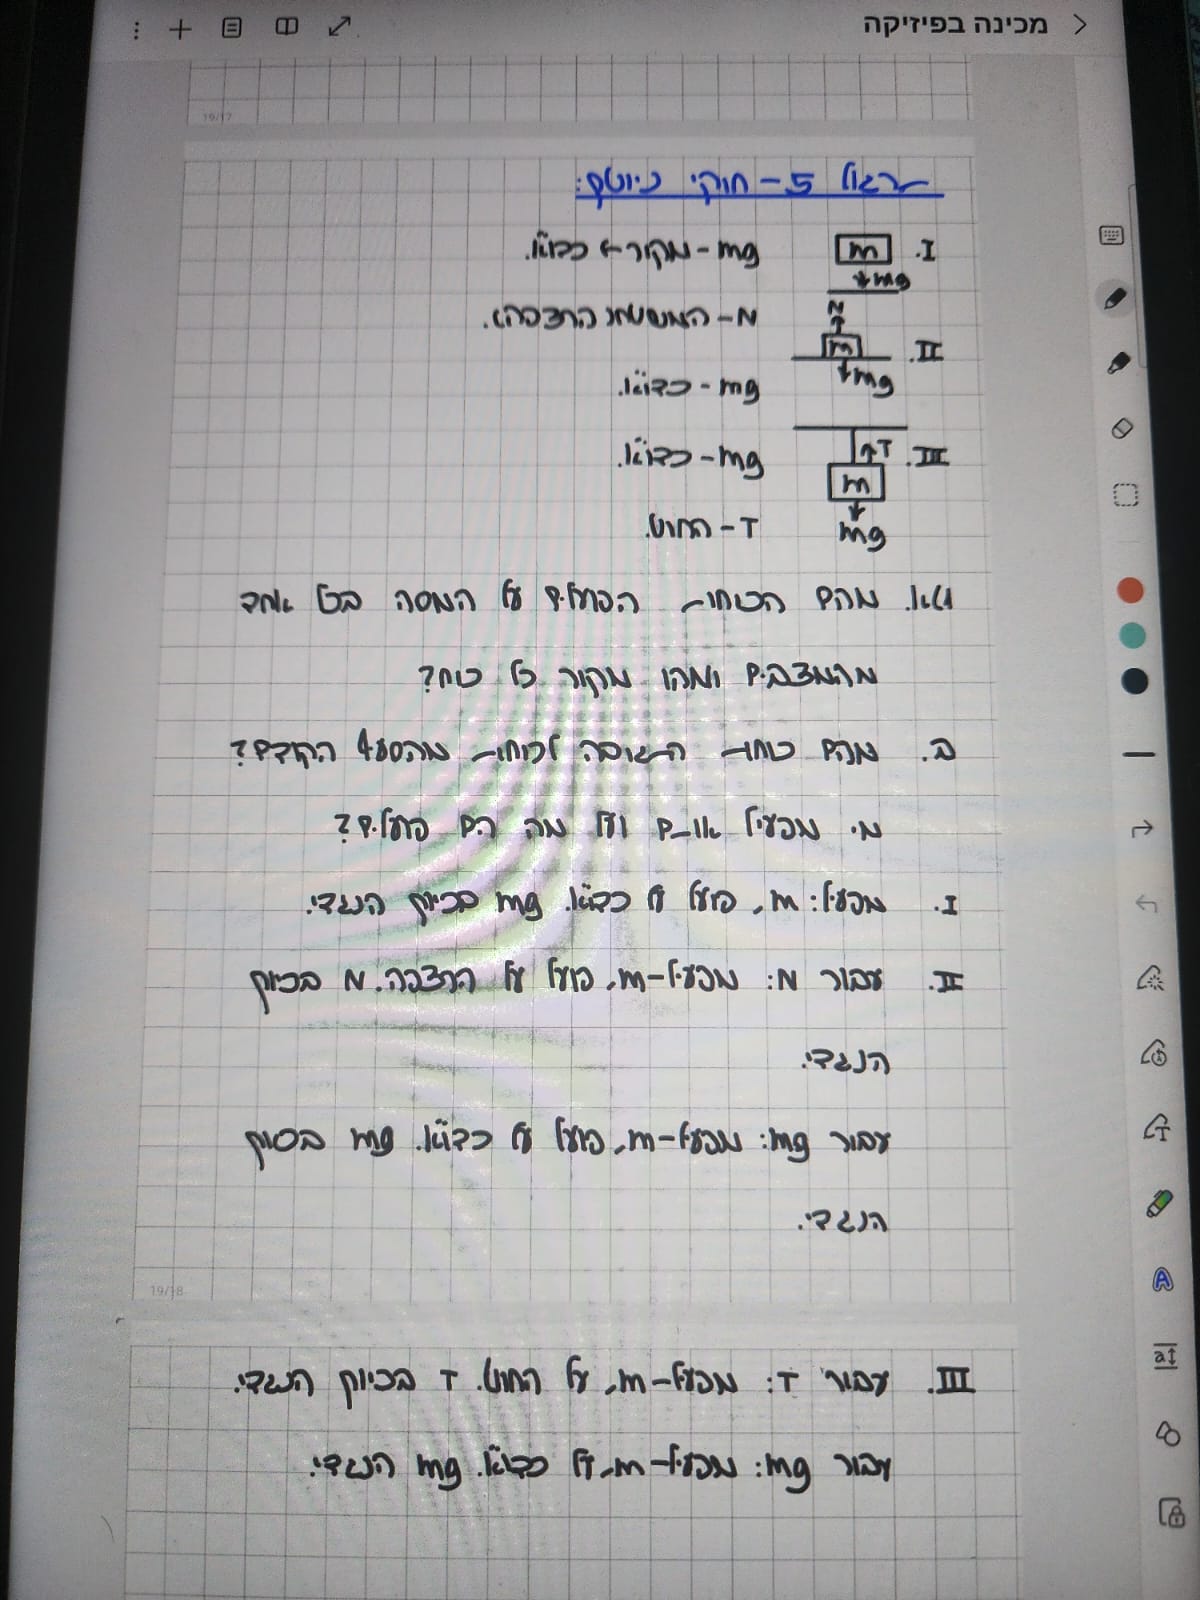 מכינה בפיזיקה
19/17
תרגול 5 - חוקי ניוטון:
I. m mg mg - מקור → כדוה"א.
II. N m mg N - המשטח (הרצפה).
mg - כדוה"א.
III. T m mg mg - כדוה"א.
T - החוט.
א. מהם הכוחות הפועלים על המסה בכל אחד
מהמצבים ומהו מקור כל כוח?
ב. מהם כוחות התגובה לכוחות מהסעיף הקודם?
מי מפעיל אותם ועל מה הם פועלים?
I. מפעיל: m, פועל על כדוה"א. mg בכיוון הנגדי.
II. עבור N: מפעיל-m, פועל על הרצפה. N בכיוון
הנגדי.
עבור mg: מפעיל-m, פועל על כדוה"א. mg בכיוון
הנגדי.
19/18
III. עבור T: מפעיל-m, על החוט. T בכיוון הנגדי.
עבור mg: מפעיל-m, על כדוה"א. mg הנגדי.